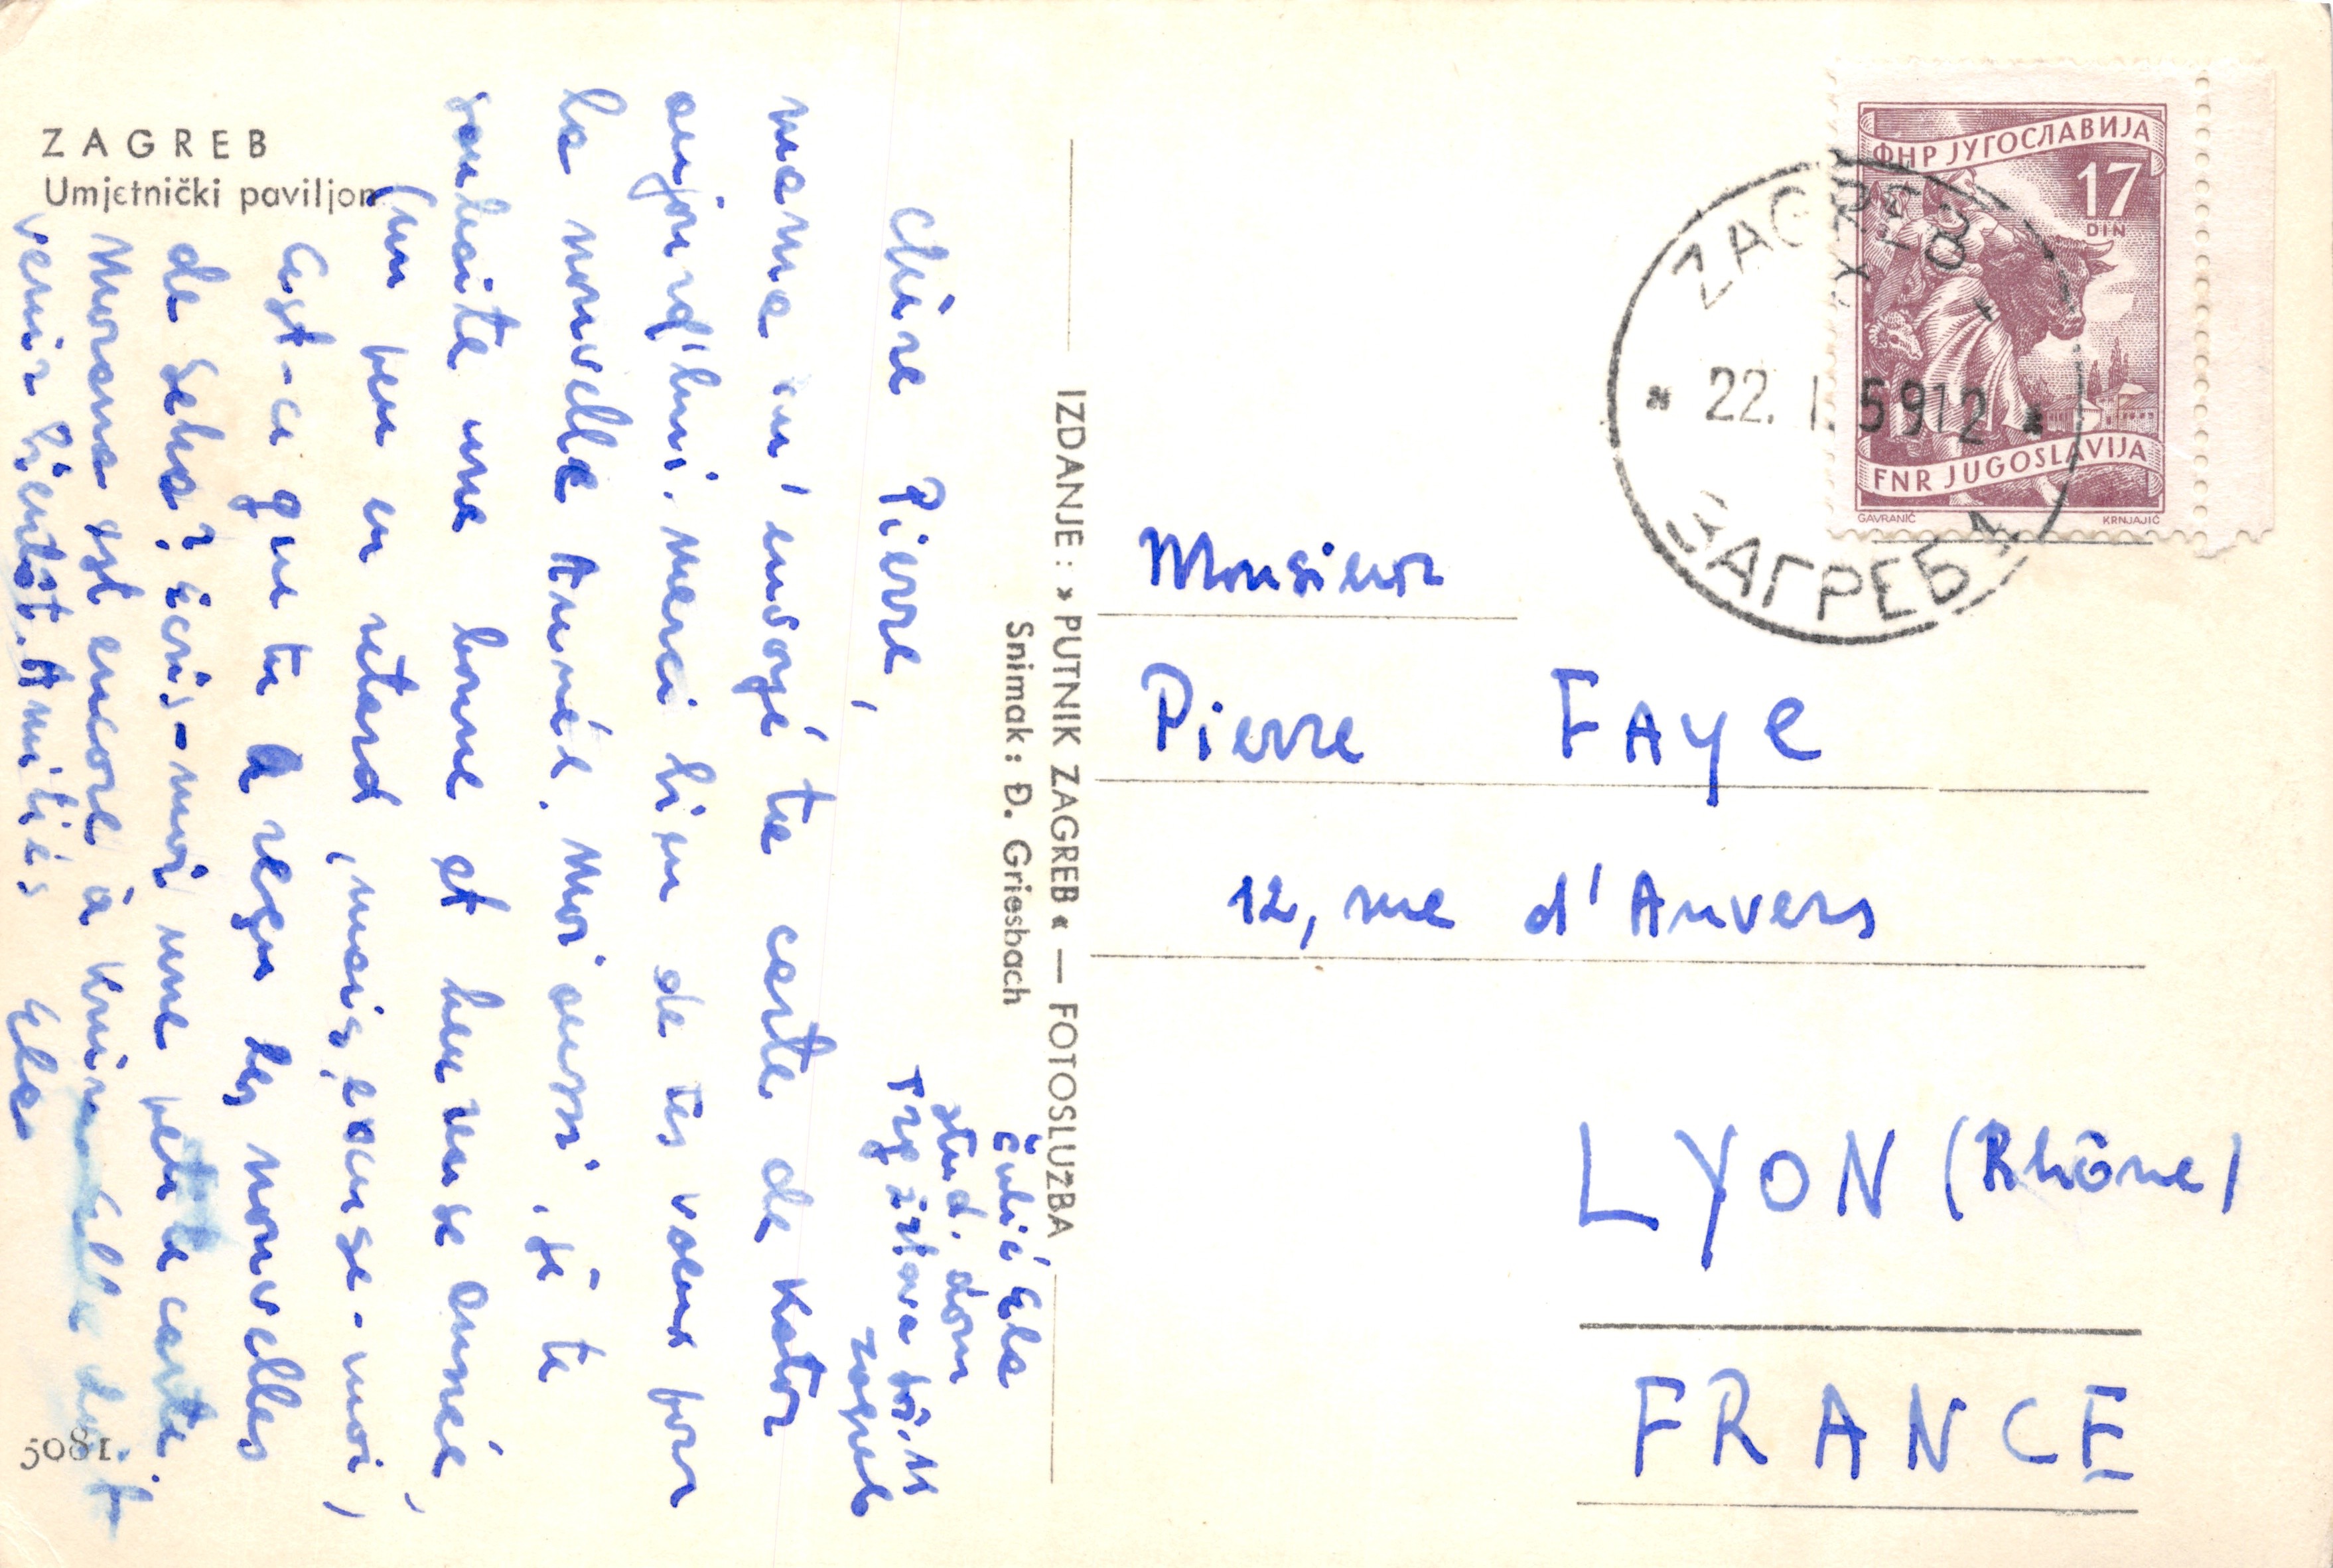 ZAGREB
Umjetnički paviljon
Čulić Ela
stud. dom
Trg žrtava
Zagreb
Chère Pierre,
mama m'envoyé ta carte de Kotor
aujourd'hui. Merci bien de tes vœux pour
la nouvelle Année. Moi aussi, je te
souhaite une bonne et heureuse année,
(un peu en retard, mais, excuse-moi,
Est-ce que tu a reçu des nouvelles
de Seka? écris-moi une petite carte.
Morana est encore à Knin. Elle doit
venir bientôt. Amitiés Ela
5081.
IZDANJE: »PUTNIK ZAGREB« — FOTOSLUŽBA
Snimak: Đ. Griesbach
ФНР ЈУГОСЛАВИЈА
17
DIN
FNR JUGOSLAVIJA
GAVRANIĆ KRNJAJIĆ
ZAGREB
22. I. 59 12
ЗАГРЕБ 1
Monsieur
Pierre FAYE
12, rue d'Anvers
LYON (Rhône)
FRANCE